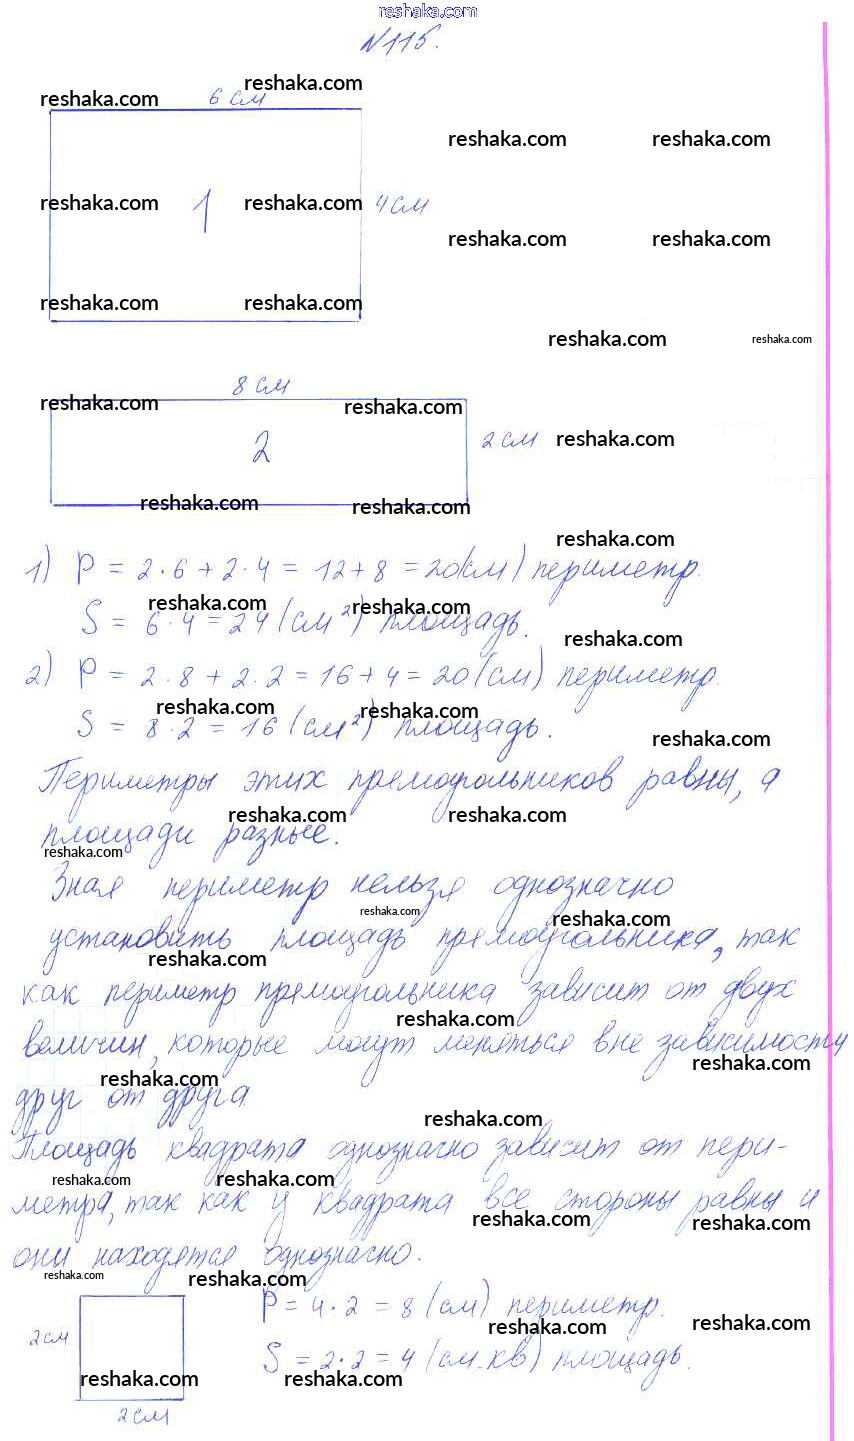 reshaka.com
№115.
reshaka.com 6 см reshaka.com
reshaka.com reshaka.com
reshaka.com 1 reshaka.com 4 см
reshaka.com reshaka.com
reshaka.com reshaka.com
reshaka.com reshaka.com
8 см
reshaka.com reshaka.com
2 2 см reshaka.com
reshaka.com reshaka.com
reshaka.com
1) P = 2·6 + 2·4 = 12 + 8 = 20(см) периметр.
reshaka.com reshaka.com
S = 6·4 = 24 (см²) площадь.
reshaka.com
2) P = 2·8 + 2·2 = 16 + 4 = 20 (см) периметр.
reshaka.com reshaka.com
S = 8·2 = 16 (см²) площадь.
reshaka.com
Периметры этих прямоугольников равны, а
reshaka.com reshaka.com
площади разные.
reshaka.com
Зная периметр нельзя однозначно
reshaka.com reshaka.com
установить площадь прямоугольника, так
reshaka.com
как периметр прямоугольника зависит от двух
reshaka.com
величин, которые могут меняться вне зависимости
reshaka.com
reshaka.com
друг от друга
reshaka.com
Площадь квадрата однозначно зависит от пери-
reshaka.com reshaka.com
метра, так как у квадрата все стороны равны и
reshaka.com reshaka.com
они находятся однозначно.
reshaka.com reshaka.com
P = 4·2 = 8 (см) периметр.
reshaka.com reshaka.com
2 см
S = 2·2 = 4 (см.кв) площадь.
reshaka.com reshaka.com
2 см